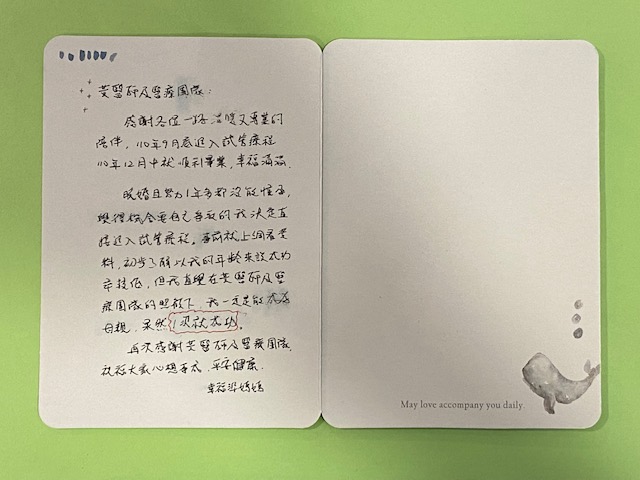 黃醫師及醫療團隊:
感謝各位一路溫暖又專業的
陪伴, 110年9月底進入試管療程
110年12月中就順利畢業, 幸福滿滿.
晚婚且努力1年多都沒能懷孕,
覺得機會要自己爭取的我決定直
接進入試管療程. 事前就上網看資
料, 初步了解以我的年齡來說成功
率較低, 但我直覺在黃醫師及醫
療團隊的照顧下, 我一定是能成為
母親, 果然1次就成功.
再次感謝黃醫師及醫療團隊,
祝福大家心想事成, 平安健康.
幸福媽媽
May love accompany you daily.